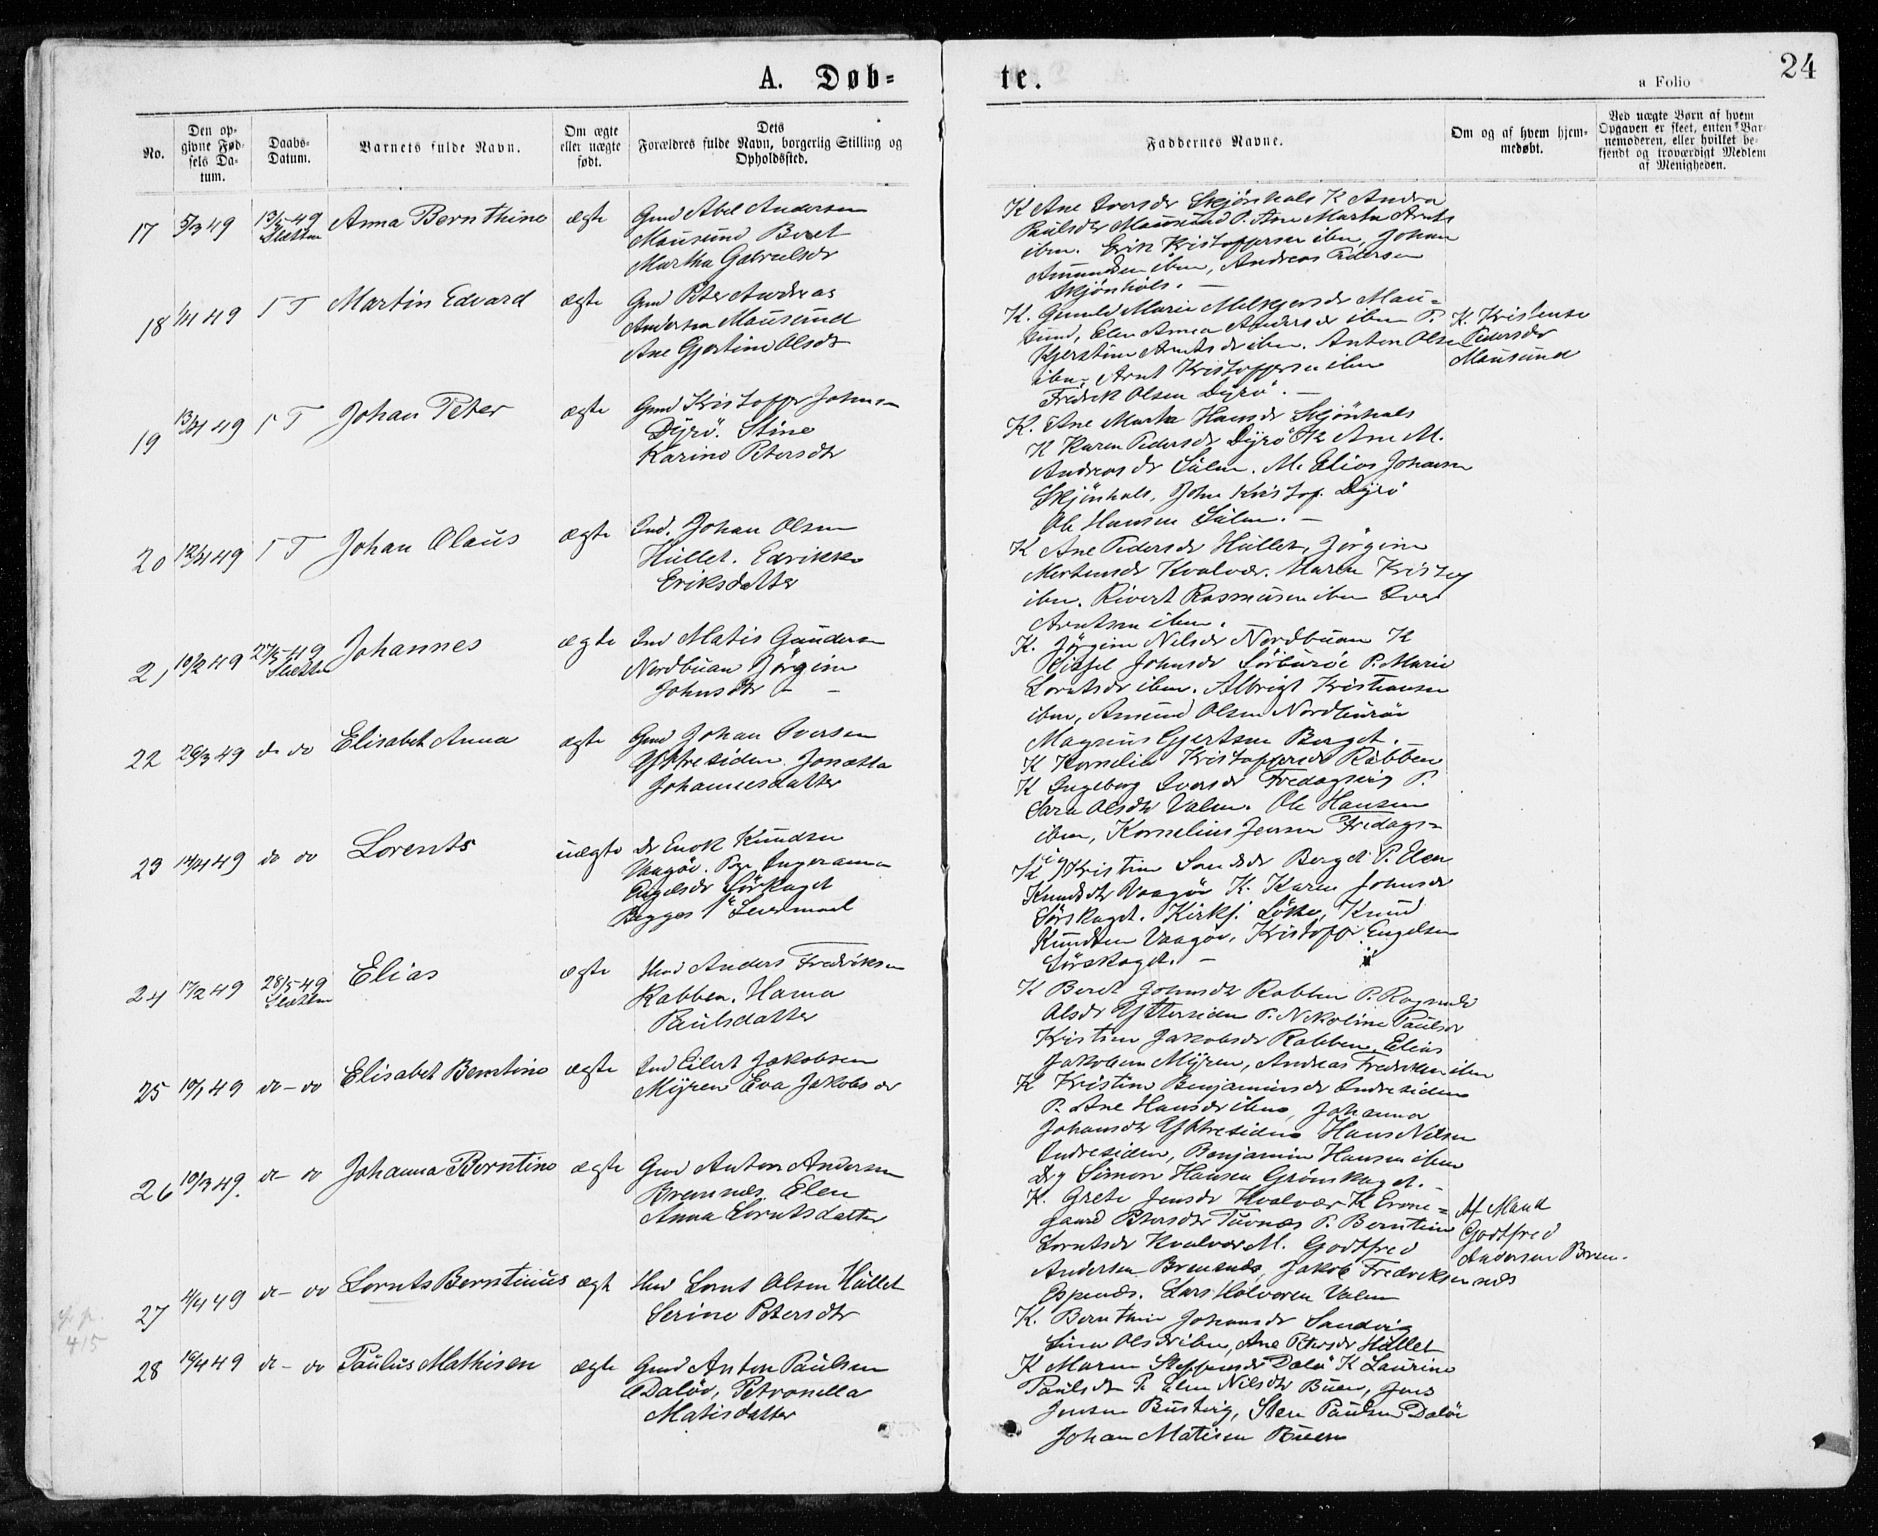 A. Døb-
te.
24
a Folio
No.
Den op-
givne Fød-
sels Da-
tum.
Daabs-
Datum.
Barnets fulde Navn.
Om ægte
eller uægte
født.
Dets
Forældres fulde Navn, borgerlig Stilling og
Opholdssted.
Faddernes Navne.
Om og af hvem hjem-
medøbt.
Ved uægte Børn af hvem
Opgaven er skeet, enten Bar-
nemoderen, eller hvilket be-
kjendt og troværdigt Medlem
af Menigheden.
17 5/3 49 13/5 49 Anna Bernthine ægte Gmd Abel Andersen
Sletten Mausund Beret
Martha Gabrielsdr
K Ane Iversdr Skjønhals K Andrea
Paulsdr Mausund P. Ane Marta Arnts
ibm. Erik Kristoffersen ibm, Johan
Amundsen ibm, Andreas Pedersen
Skjønhals. —
18 1/4 49 i T Martin Edvard ægte Gmd Peter Andreas
Andersen Mausund
Ane Gjertine Olsdr
K. Gunild Marie Melkjersdr Mau-
sund, Elen Anna Andersdr ibm P.
Kjerstine Arntsdr ibm. Anton Olsen
ibm, Arnt Kristoffersen ibm
Fredrik Olsen Dyrø. —
K. Kristense
Pedersdr
Mausund
19 13/4 49 i T Johan Peter ægte Gmd Kristoffer Johns-
Dyrø. Stine
Karine Petersdtr
K. Ane Marta Hansdr Skjønhals
K Karen Pedersdr Dyrø K Ane M.
Andreasdr Sulen. M. Elias Johansen
Skjønhals, John Kristof. Dyrø
Ole Hansen Sulen. —
20 12/4 49 i T Johan Olaus ægte Ind. Johan Olsen
Hullet. Edrikke
Eriksdatter
K Ane Pedersdr Hullet, Jørgine
Mortensdr Kvalvær. Maren Kristof
ibm. Sivert Rasmusen ibm Iver
Arntsen ibm.
21 10/2 49 27/5 49 Johannes ægte Ind Matis Gundersen
Sletten Nordbuan Jørgine
Johnsdtr — —
K. Jørgine Nilsdr Nordbuan K
Johnsdr Sørburøe P. Marie
Lorntsdr ibm. Albrigt Kristiansen
ibm, Amund Olsen Nordburøe
Magnus Gjertsen Berget. —
22 26/3 49 do do Elisabet Anna ægte Gmd Johan Iversen
Yttresiden. Jonetta
Johannesdatter
K Kornelie Kristoffersdr Rabben
K Ingeborg Iversdr Fredagsvig P.
Sara Olsdtr Valen. Ole Hansen
ibm, Kornelius Jensen Fredags-
vig
23 14/4 49 do do Lorents uægte Dr Enok Knudsen
Vaagøe. Pge Ingeranna
Engelsdr Sørskaget
Begges 1ste Leiermaal
K Kristine Berget P. Elen
Knudsdtr Vaagøe K. Karen Johnsdr
Sørskaget. Kirks. Løkke, Knud
Knudsen Vaagøe, Kristoffer Engelsen
Sørskaget. —
24 17/2 49 28/5 49 Elias ægte Hmd Anders Fredriksen
Sletten Rabben. Hanna
Paulsdatter
K Beret Johnsdtr Rabben P. Ragnhild
Olsdr Yttersiden P. Nekoline Paulsdr
Kristine Jakobsdr Rabben Elias
Jakobsen Myren, Andreas Fredriksen ibm
25 10/1 49 do — do Elisabet Berntine ægte Ind Eilert Jakobsen
Myren Eva Jakobsdr
K Kristine Benjaminsdr Indresiden
P. Ane Hansdr ibm, Johanna
Johansdtr Yttresiden Hans Nilsen
Indresiden, Benjamin Hansen ibm
Simon Hansen Grønskaget. —
26 10/3 49. do — do Johanna Berntine ægte Gmd Anton Andersen
Bremnes. Elen
Anna Lorntsdatter
K. Grete Jensdr Kvalvær K
Petersdtr Tuvnes P. Berntine
Lorntsdr Kvalvær M. Godtfred
Andersen Bremnes, Jakob Fredriksen
Espenes. Lars Halvorsen Valen
Af Mand
Godtfred
Andersen Brem-
nes
27 11/4 49 do — do Lornts Berntinus ægt Hmd Lornt Olsen Hullet
Serine Petersdtr
K. Bernthine Johansdr Sandvig
Lina Olsdr ibm, Ane Petersdr Hullet
28 15/4 49 do — do Paulus Mathisen ægte Gmd Anton Paulsen
Daløe, Petronella
Matisdatter
K Maren Steffensdr Daløe K Laurine
Paulsdtr P. Elen Nilsdtr Buen, Jens
Jensen Bustvig, Sten Paulsen Daløe
Johan Matisen Buen
415